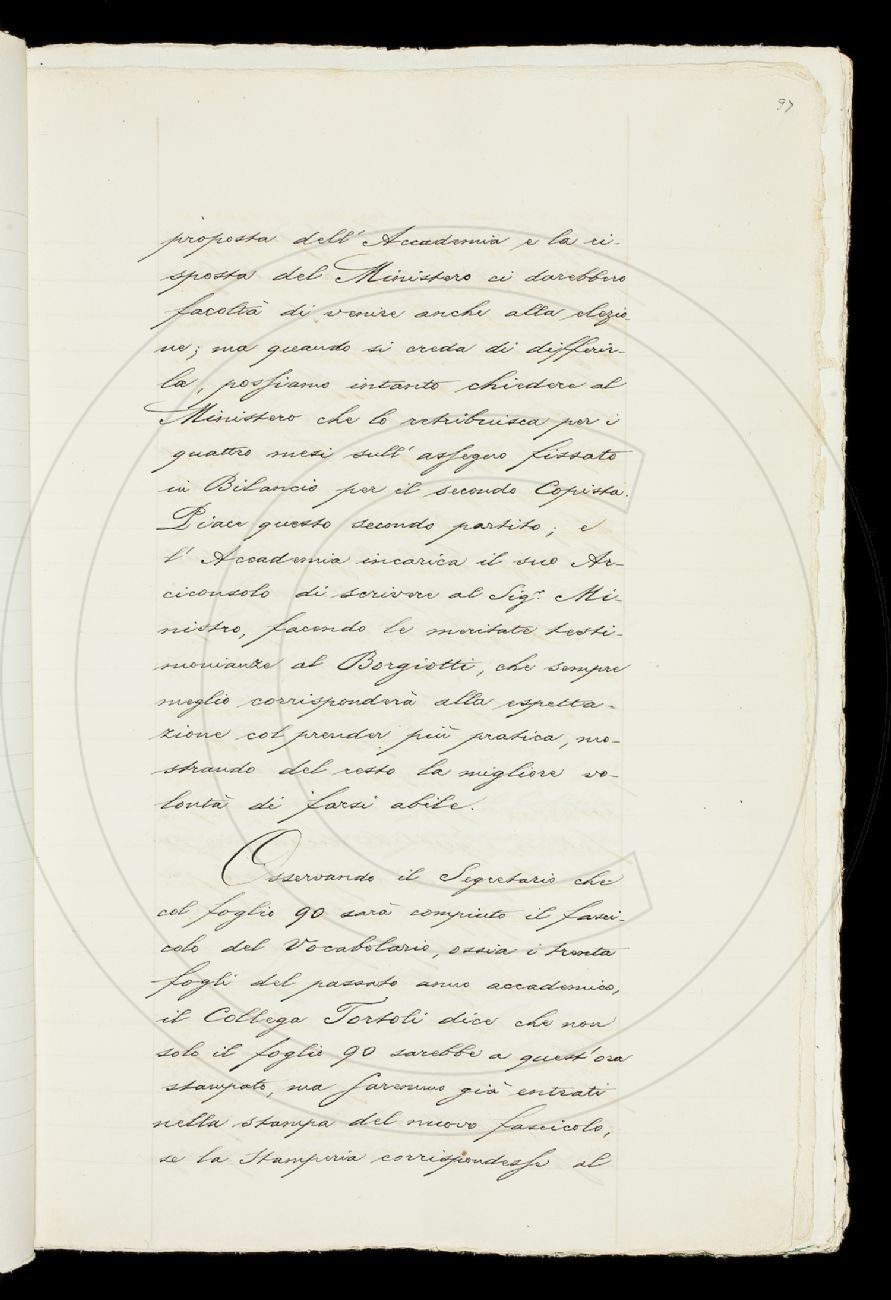 97
proposta dell' Accademia e la ri-
sposta del Ministero ci darebbero
facoltà di venire anche alla elezio-
ne; ma quando si creda di differir-
la, possiamo intanto chiedere al
Ministero che lo retribuisca per i
quattro mesi sull' assegno fissato
in Bilancio per il secondo Copista.
Piace questo secondo partito; e
l' Accademia incarica il suo Ar-
ciconsolo di scrivere al Sigr. Mi-
nistro, facendo le meritate testi-
monianze al Borgiotti, che sempre
meglio corrisponderà alla espetta-
zione col prender più pratica, mo-
strando del resto la migliore vo-
lontà di farsi abile.
Osservando il Segretario che
col foglio 90 sarà compiuto il fasci-
colo del Vocabolario, ossia i trenta
fogli del passato anno accademico,
il Collega Tortoli dice che non
solo il foglio 90 sarebbe a quest'ora
stampato, ma saremmo già entrati
nella stampa del nuovo fascicolo,
se la Stamperia corrispondesse al